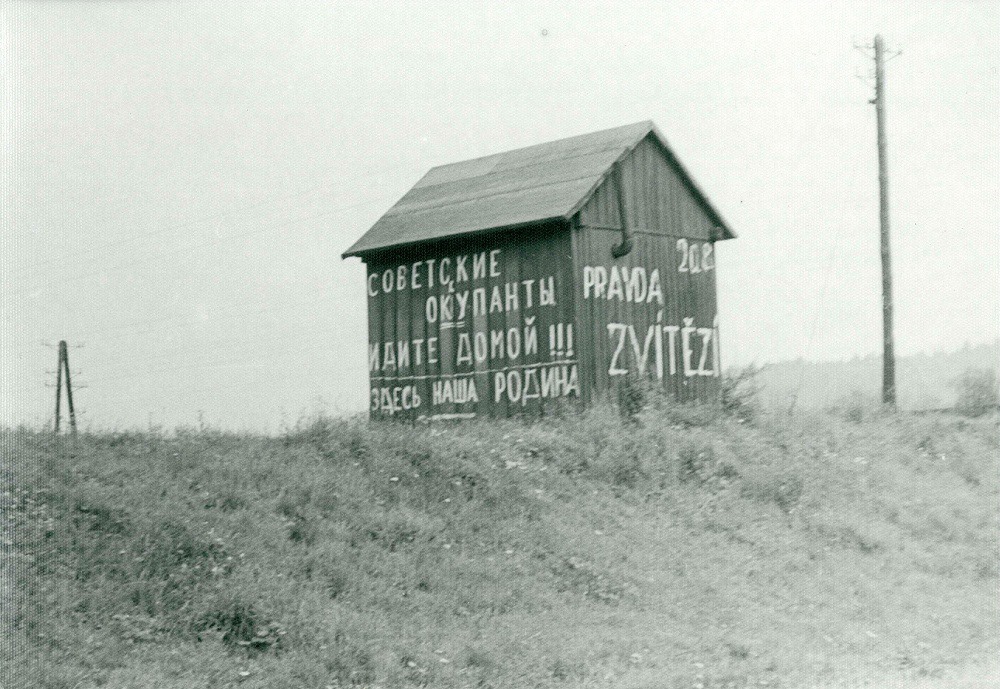 СОВЕТСКИЕ
ОКУПАНТЫ
ИДИТЕ ДОМОЙ !!!
ЗДЕСЬ НАША РОДИНА
PRAVDA
ZVÍTĚZÍ